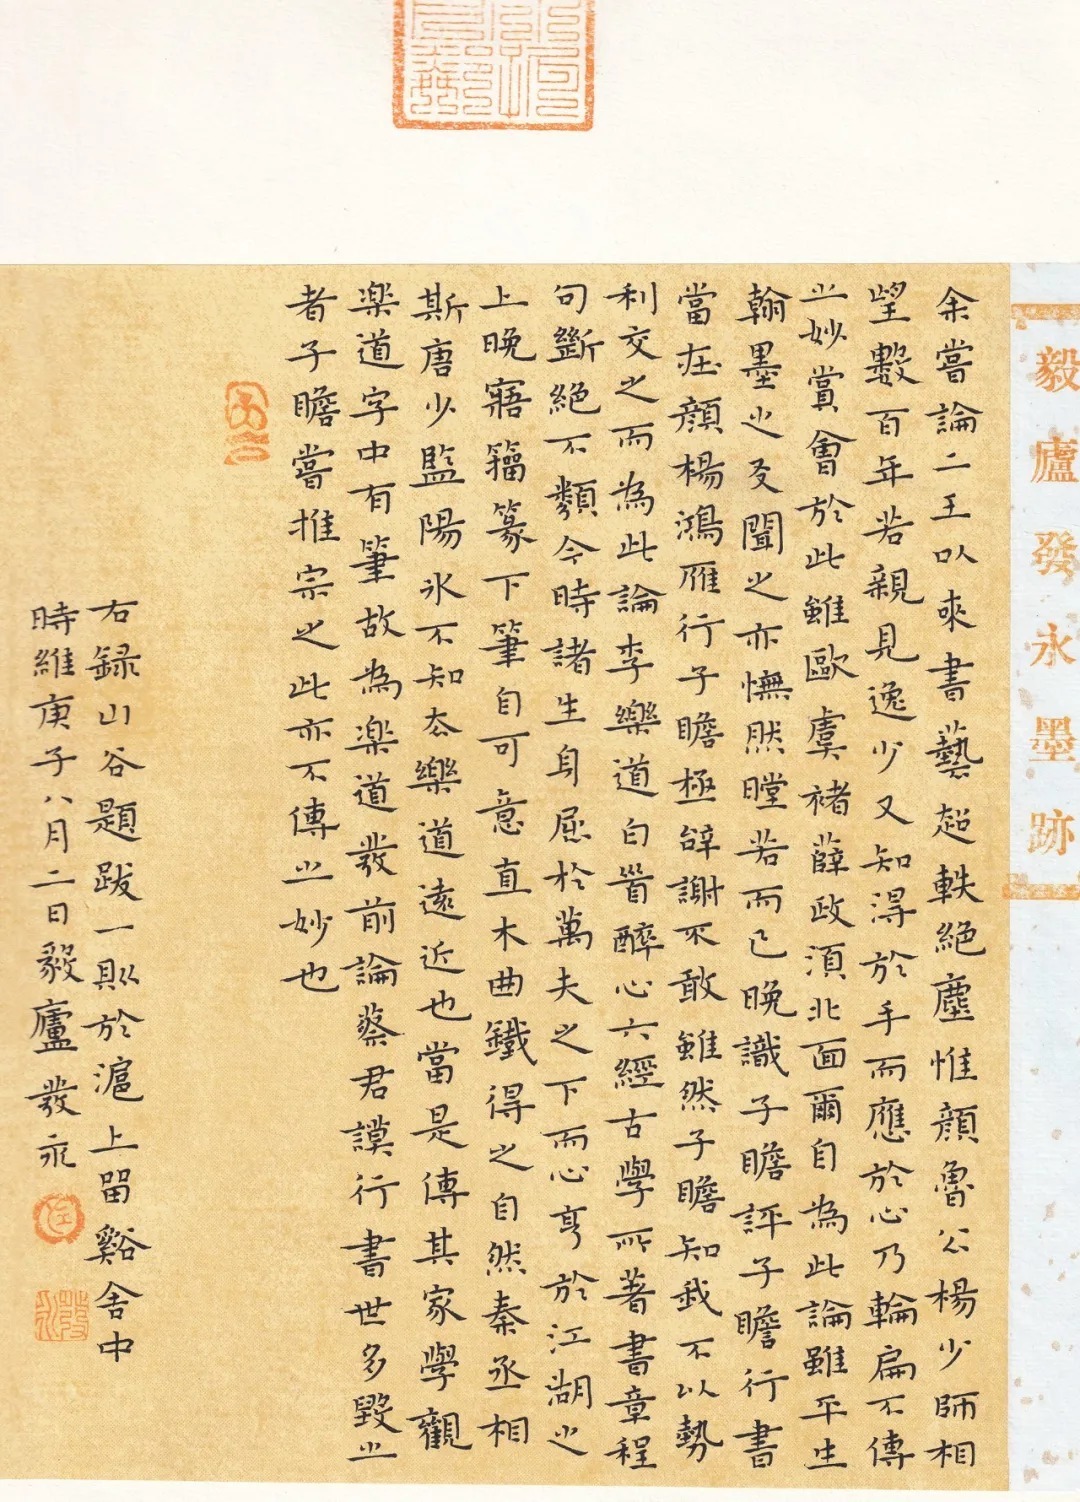 毅廬發永墨跡
余嘗論二王以來書藝超軼絕塵惟顏魯公楊少師相
望數百年若親見逸少又知得於手而應於心乃輪扁不傳
之妙賞會於此雖歐虞褚薛政須北面爾自為此論雖平生
翰墨之友聞之亦憮然瞠若而已晚識子瞻評子瞻行書
當在顏楊鴻雁行子瞻極辭謝不敢雖然子瞻知我不以勢
利交之而為此論李樂道白首醉心六經古學所著書章程
句斷絕不類今時諸生身屈於萬夫之下而心亨於江湖之
上晚寤籀篆下筆自可意直木曲鐵得之自然秦丞相
斯唐少監陽冰不知去樂道遠近也當是傳其家學觀
樂道字中有筆故為樂道發前論蔡君謨行書世多毀之
者子瞻嘗推宗之此亦不傳之妙也
右録山谷題跋一則於滬上留谿舍中
時維庚子八月二日毅廬發永